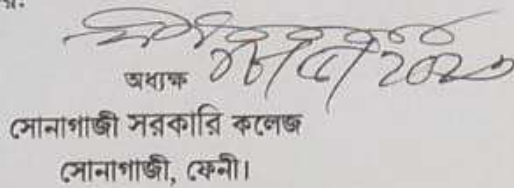 অধ্যক্ষ
সোনাগাজী সরকারি কলেজ
সোনাগাজী, ফেনী।